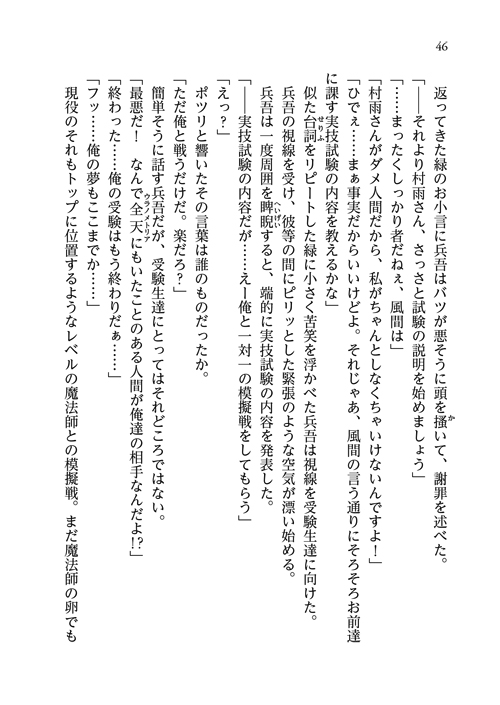 46
返ってきた緑のお小言に兵吾はバツが悪そうに頭を掻いて、謝罪を述べた。
「――それより村雨さん、さっさと試験の説明を始めましょう」
「……まったくしっかり者だねぇ、風間は」
「村雨さんがダメ人間だから、私がちゃんとしなくちゃいけないんですよ！」
「ひでぇ……まぁ事実だからいいけどよ。それじゃあ、風間の言う通りにそろそろお前達
に課す実技試験の内容を教えるかな」
似た台詞をリピートした緑に小さく苦笑を浮かべた兵吾は視線を受験生達に向けた。
兵吾の視線を受け、彼等の間にピリッとした緊張のような空気が漂い始める。
兵吾は一度周囲を睥睨すると、端的に実技試験の内容を発表した。
「――実技試験の内容だが……えー俺と一対一の模擬戦をしてもらう」
「えっ？」
ポツリと響いたその言葉は誰のものだったか。
「ただ俺と戦うだけだ。楽だろ？」
簡単そうに話す兵吾だが、受験生達にとってはそれどころではない。
「最悪だ！　なんで全天にもいたことのある人間が俺達の相手なんだよ!?」
「終わった……俺の受験はもう終わりだぁ……」
「フッ……俺の夢もここまでか……」
現役のそれもトップに位置するようなレベルの魔法師との模擬戦。まだ魔法師の卵でも